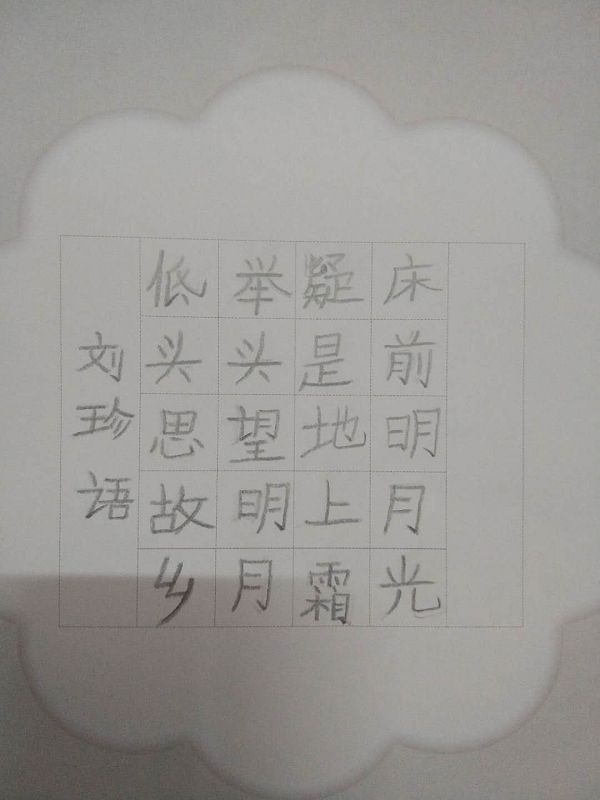 床前明月光
疑是地上霜
举头望明月
低头思故乡
刘珍语